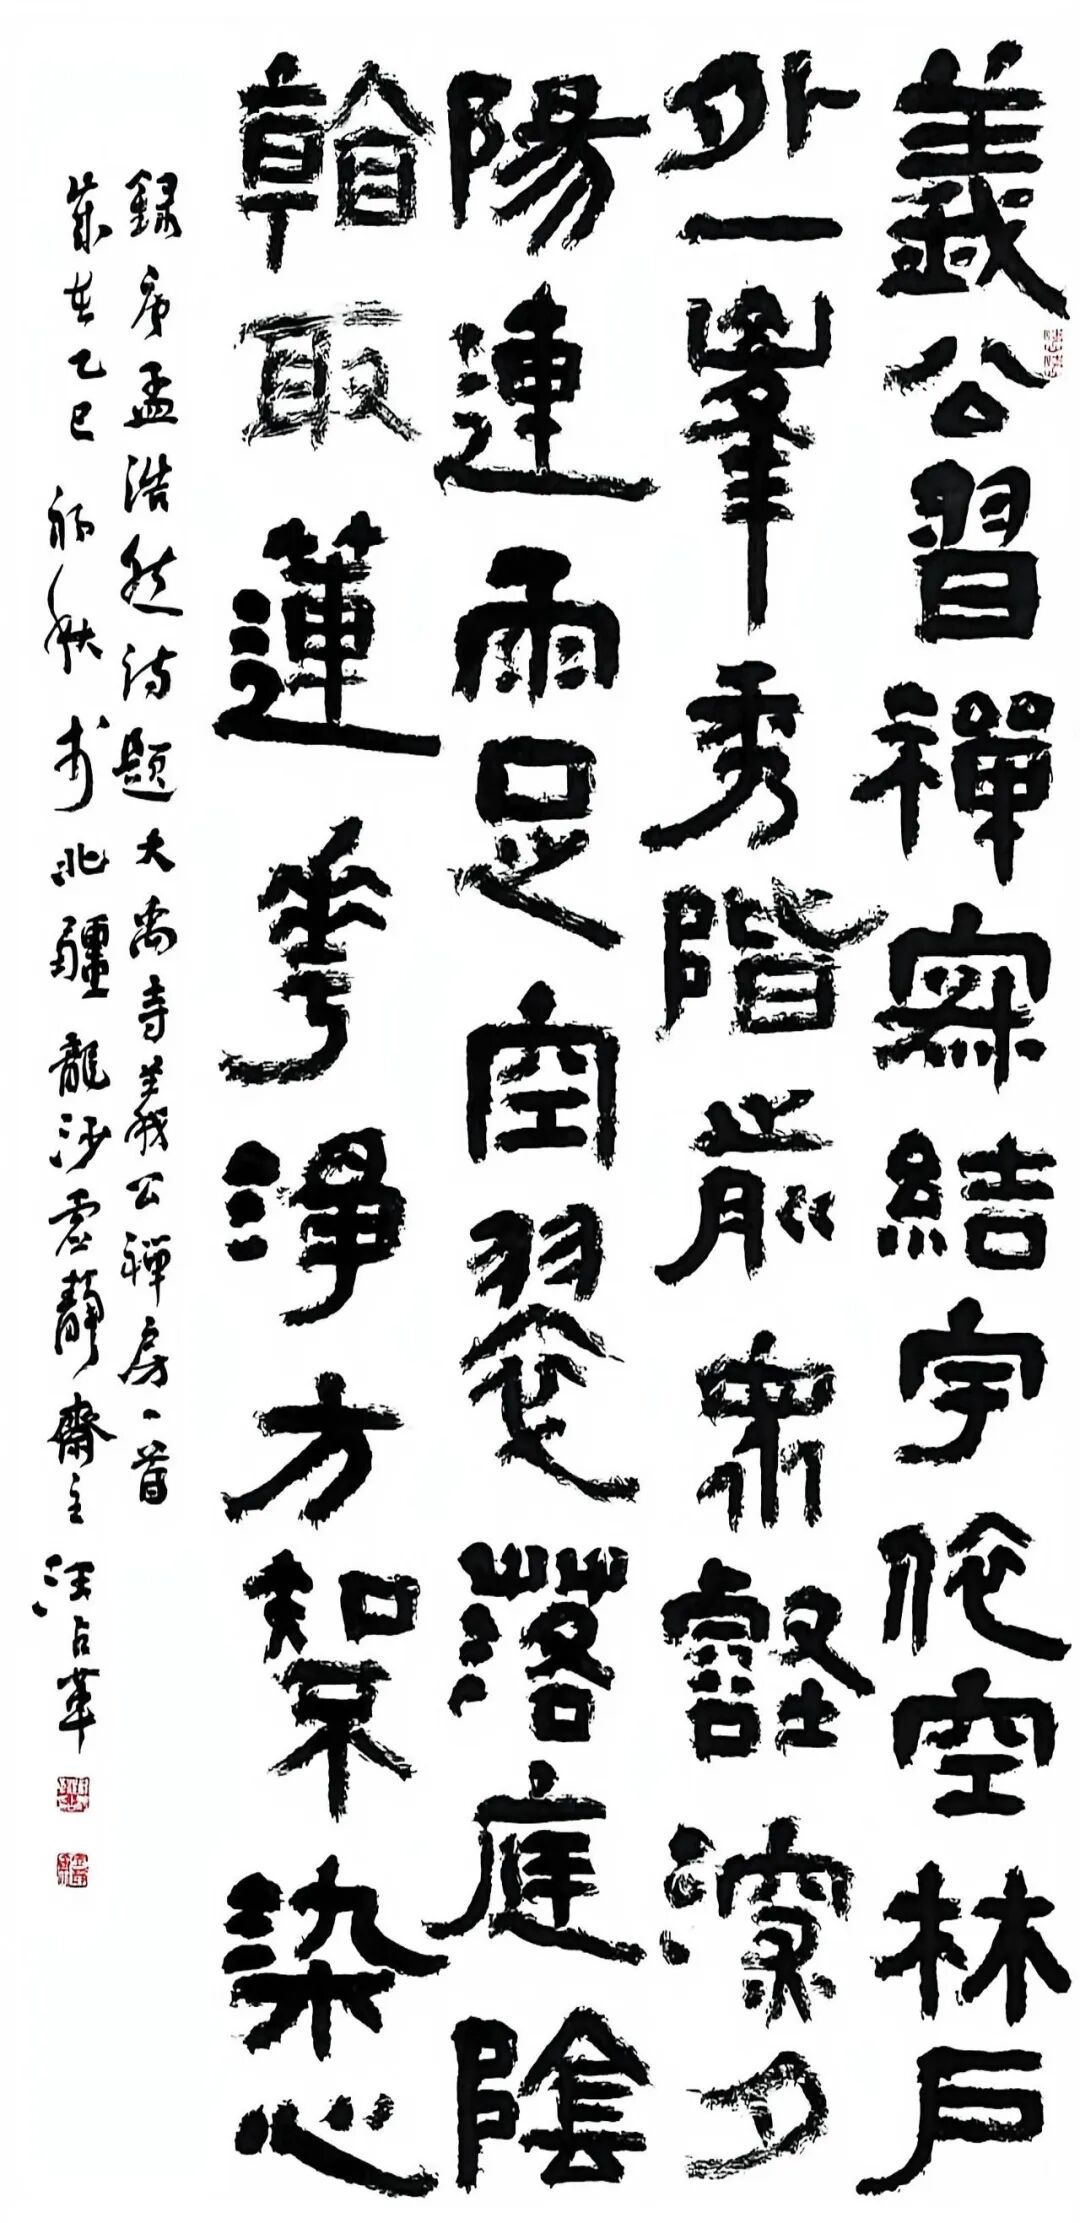 義公習禪寂結宇依空林戶
外一峯秀階前衆壑深夕
陽連雨足空翠落庭陰
看取蓮華淨方知不染心
錄唐孟浩然詩題大禹寺義公禪房一首
歲在乙巳初秋於北疆龍沙虛靜齋主汪占革